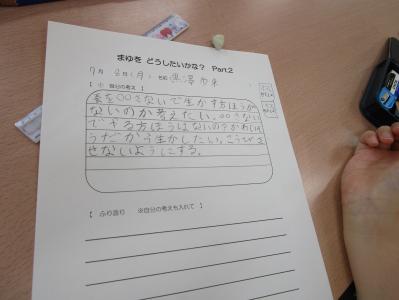 まゆを どうしたいかな? Part2
7月 8日(月) 名前
【 ☆ 自分の考え 】
糸を○○さないで生かす方ほうが
ないのか考えたい。○○さない
でできる方ほうはないの?かわいそ
うだから生かしたい。こうびさ
せないようにする。
【 ふり返り ※自分の考えも入れて 】